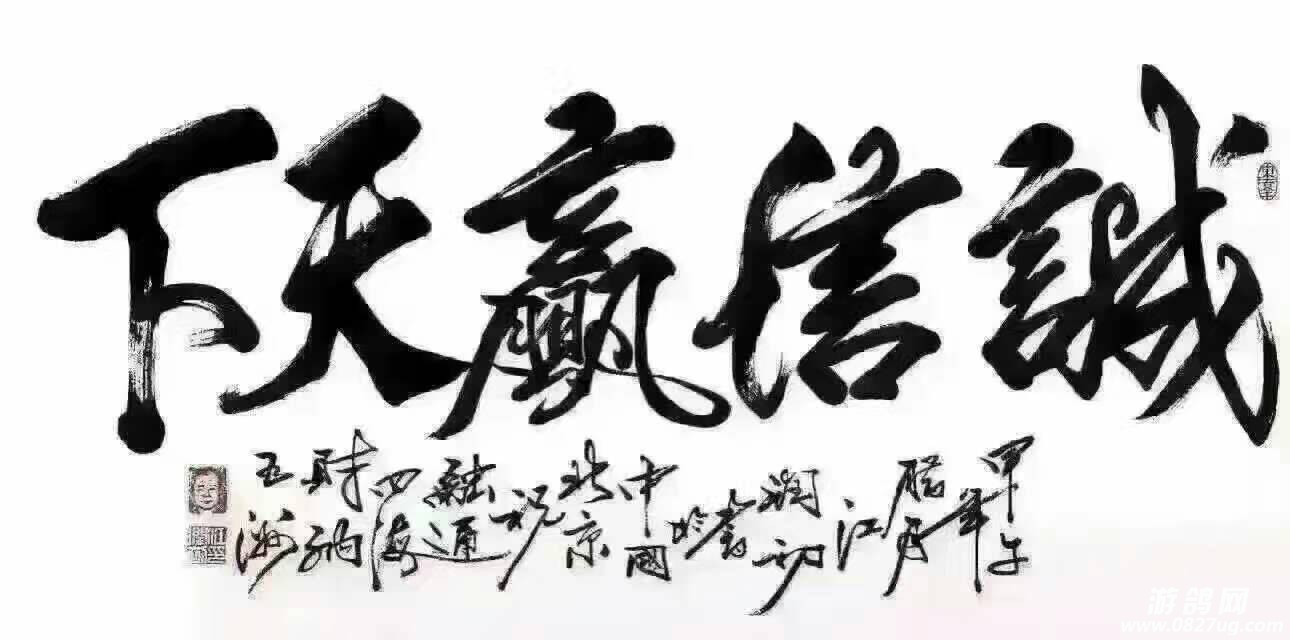 誠信贏天下
甲午
年
腊月
江
潤初
書於
中國
北京
祝
融通
四海
財納
五洲
游鸽网
www.0827ug.com